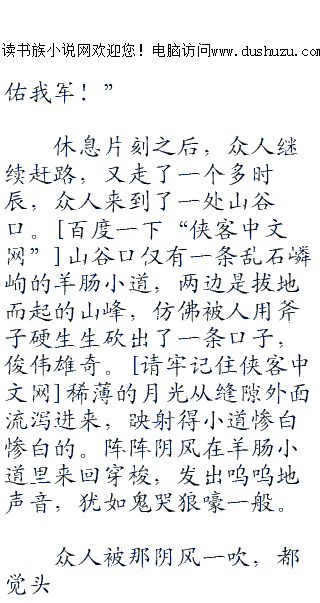 读书族小说网欢迎您！电脑访问www.dushuzu.com
佑我军！”
休息片刻之后，众人继
续赶路，又走了一个多时
辰，众人来到了一处山谷
口。[百度一下“侠客中文
网”]山谷口仅有一条乱石嶙
峋的羊肠小道，两边是拔地
而起的山峰，仿佛被人用斧
子硬生生砍出了一条口子，
俊伟雄奇。[请牢记住侠客中
文网]稀薄的月光从缝隙外面
流泻进来，映射得小道惨白
惨白的。阵阵阴风在羊肠小
道里来回穿梭，发出呜呜地
声音，犹如鬼哭狼嚎一般。
众人被那阴风一吹，都
觉头